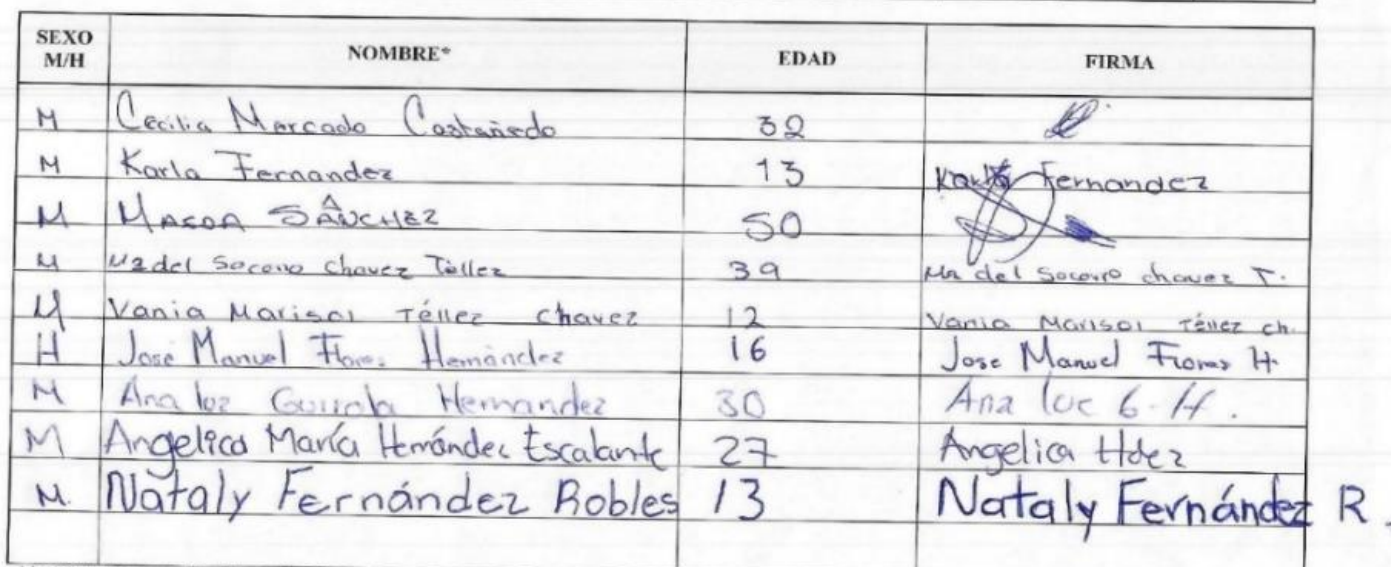 SEXO M/H NOMBRE* EDAD FIRMA
M Cecilia Mercado Castañedo 32
M Karla Fernandez 13 Karla Fernandez
M SÁNCHEZ 50
M Ma del Socorro Chavez Téllez 39 Ma del Socorro chavez T.
M Vania Marisol Téllez Chavez 12 Vania Marisol Téllez Ch.
H José Manuel Flores Hernández 16 Jose Manuel Flores H.
M Ana luz Hernandez 30 Ana luc G. H.
M Angelica María Hernández Escalante 27 Angelica Hdez
M. Nataly Fernández Robles 13 Nataly Fernández R.